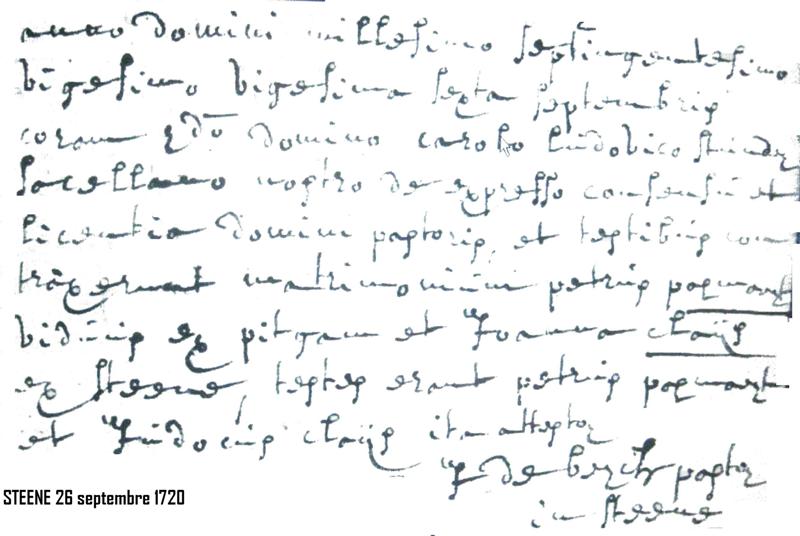 anno domini millesimo septingentesimo
vigesimo vigesima sexta septembris
coram Rdo domino carolo ludovico
sacellano nostro de expresso consensu et
licentia domini pastoris, et testibus con
traxerunt matrimonium petrus poqmart
viduus ex pitgam et Joanna claijs
ex steene, testes erant petrus poqmart
et Judocus claijs ita attestor
J de berch pastor
in steene
STEENE 26 septembre 1720